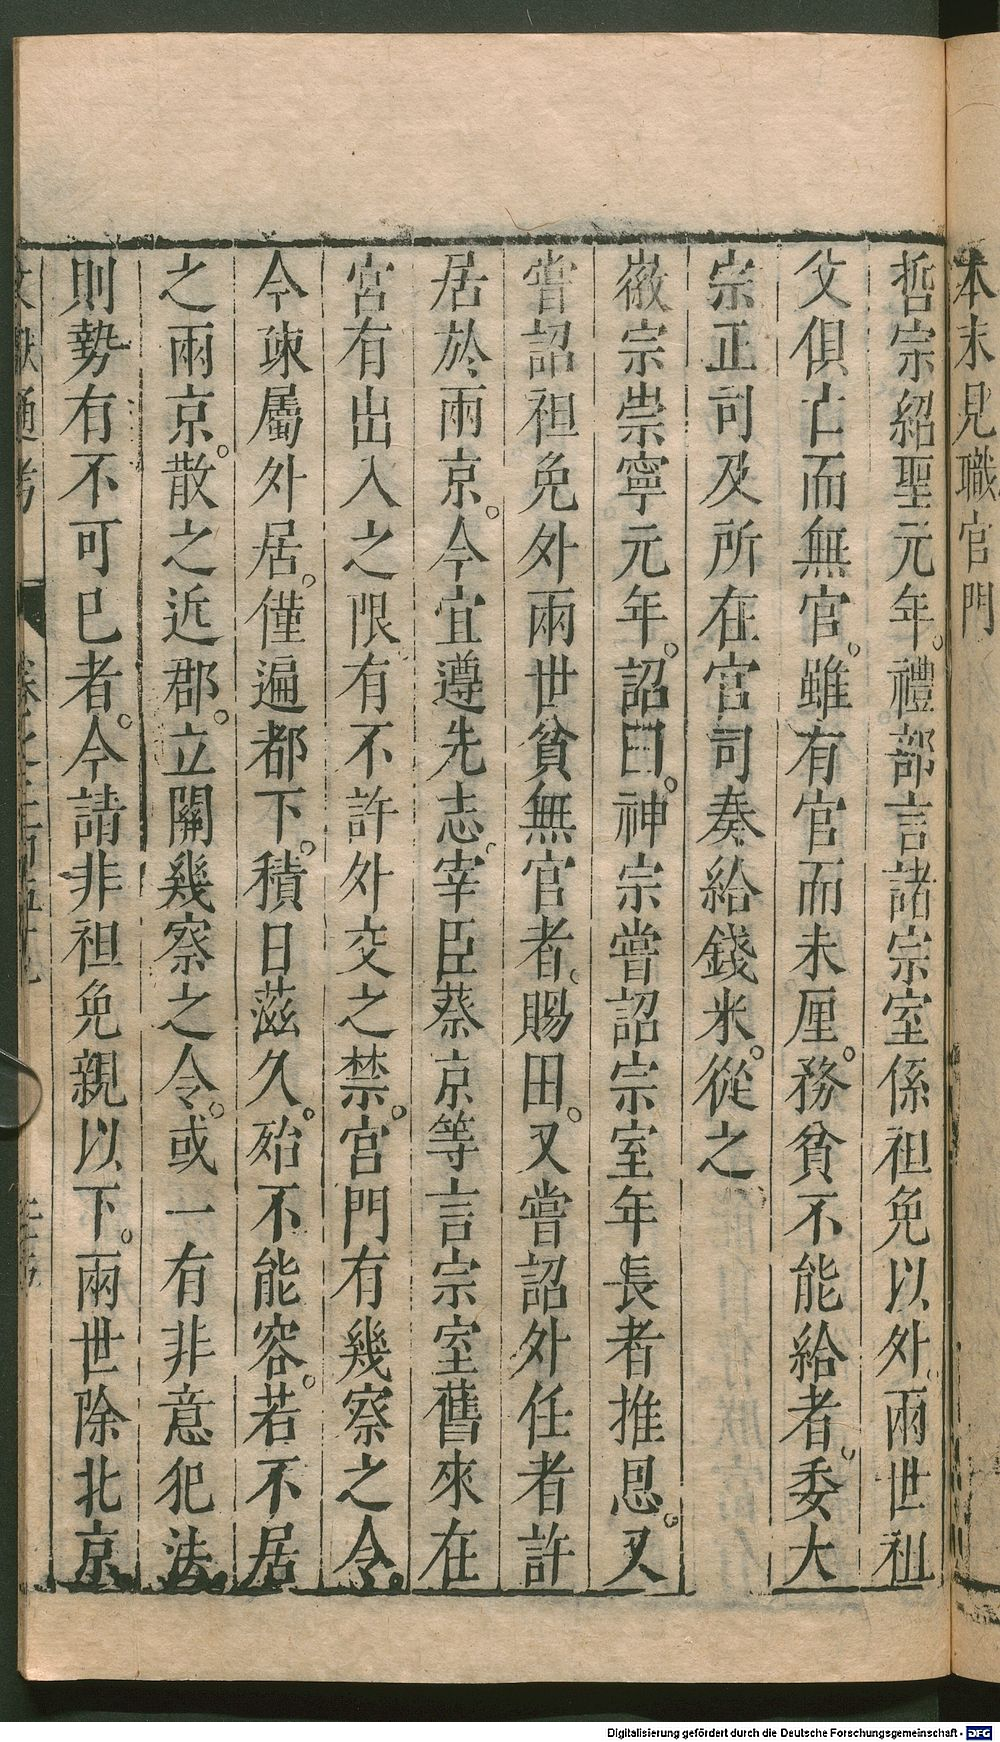 本末見職官門
哲宗紹聖元年。禮部言諸宗室係袒免以外。兩世祖
父俱亡而無官。雖有官而未厘務。貧不能給者。委大
宗正司及所在官司奏給錢米。從之
徽宗崇寧元年。詔曰。神宗嘗詔宗室年長者推恩。又
嘗詔袒免外兩世貧無官者。賜田。又嘗詔外任者許
居於兩京。今宜遵先志。宰臣蔡京等言宗室舊來在
宮有出入之限。有不許外交之禁。宮門有幾察之令。
今疎屬外居。僅遍都下。積日滋久。殆不能容。若不居
之兩京。散之近郡。立關幾察之令。或一有非意犯法
則勢有不可已者。今請非袒免親以下。兩世除北京
文獻通考
Digitalisierung gefördert durch die Deutsche Forschungsgemeinschaft - DFG